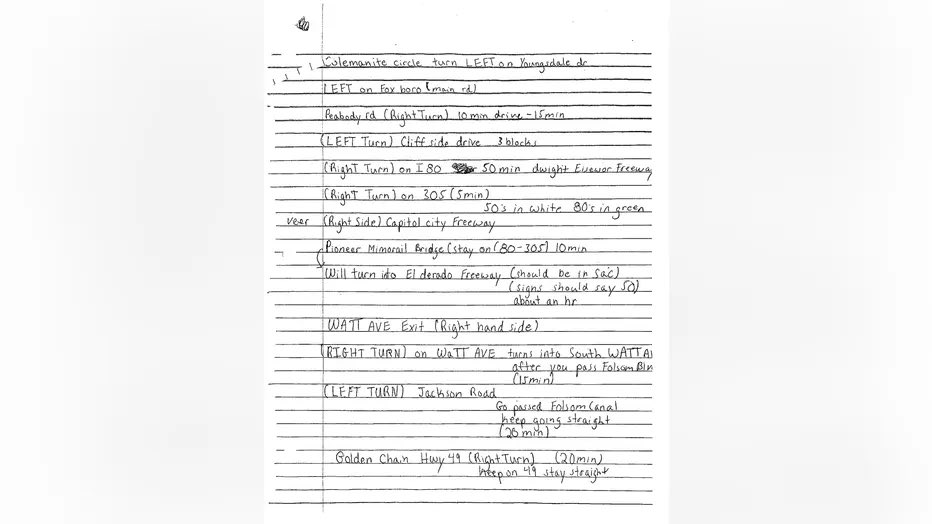 Colemanite circle turn LEFT on Youngsdale dr
LEFT on Foxboro (main rd)
Peabody rd (Right Turn) 10 min drive - 15min
(LEFT Turn) Cliffside drive 3 blocks
(Right Turn) on I 80 50 min dwight Freeway
(Right Turn) on 305 (5min)
50's in white 80's in green
veer (Right Side) Capitol city Freeway
Pioneer Mimorail Bridge (stay on (80-305) 10min
Will turn into El derado Freeway (should be in Sac)
(signs should say 50)
about an hr
WATT AVE Exit (Right hand side)
(RIGHT TURN) on WaTT AVE turns into South WATT A
after you pass Folsom Bl
(15min)
(LEFT TURN) Jackson Road
Go passed Folsom Canal
keep going straight
(20 min)
Golden Chan Hwy 49 (Right Turn) (20min)
keep on 49 stay straight